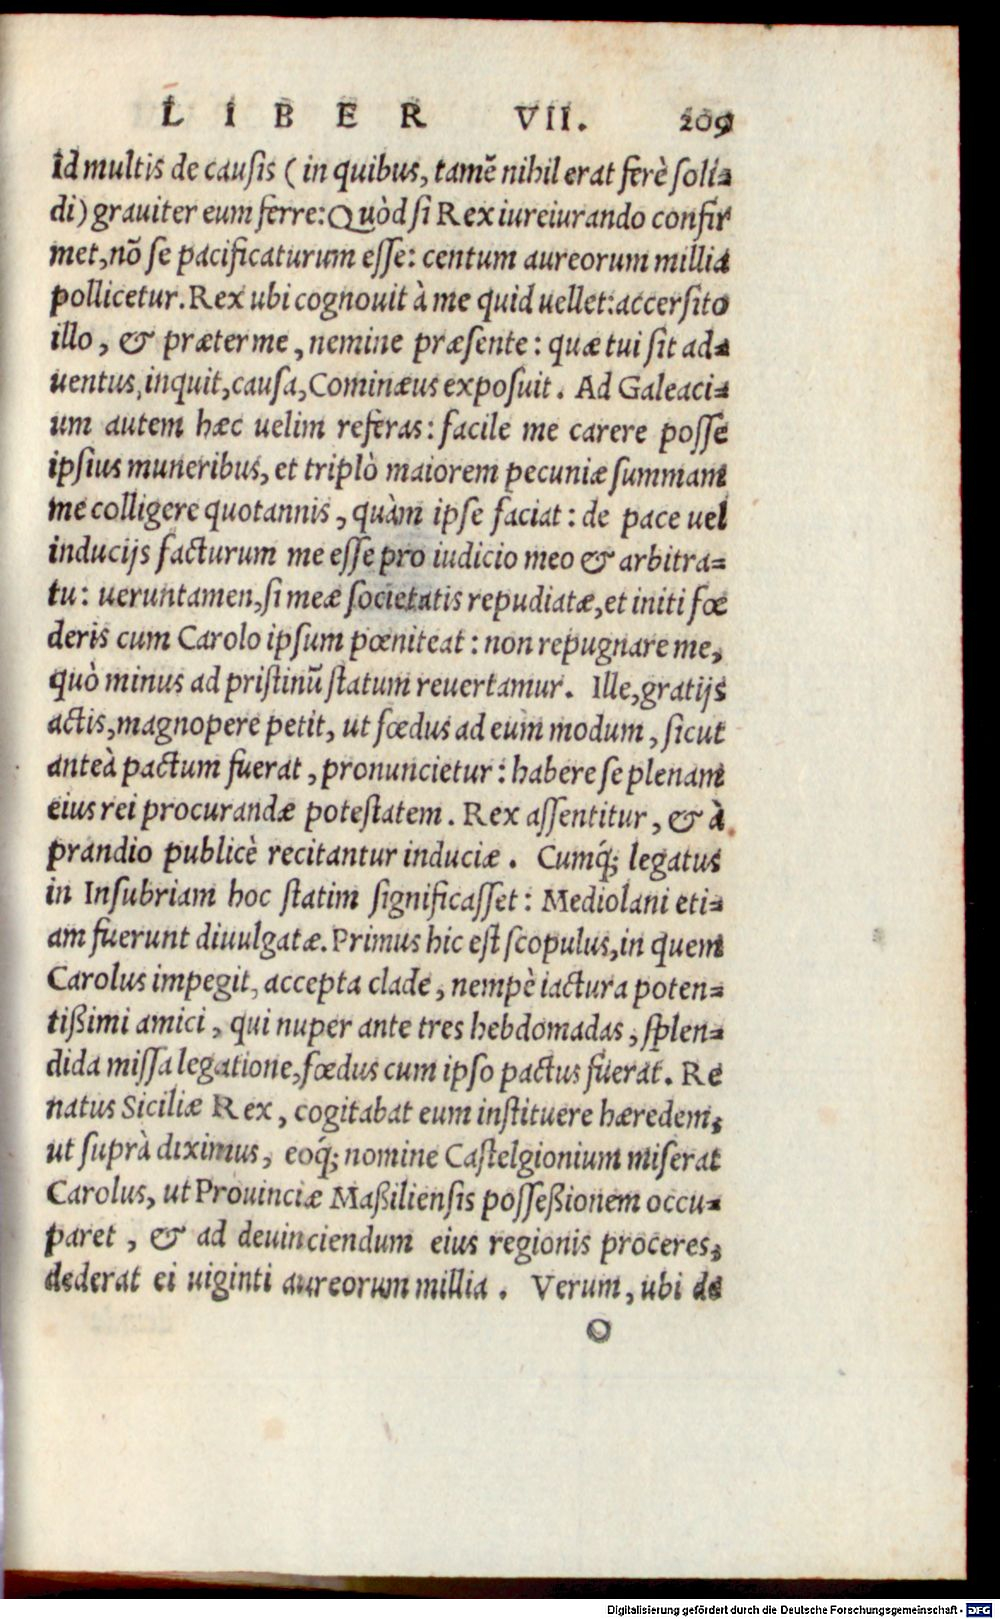 LIBER VII. 209
Id multis de causis (in quibus, tamē nihil erat ferè soli-
di) grauiter eum ferre: Quòd si Rex iureiurando confir
met, nō se pacificaturum esse: centum aureorum millia
pollicetur. Rex ubi cognouit à me quid uellet: accersito
illo, & præter me, nemine præsente: quæ tui sit ad-
uentus, inquit, causa, Cominæus exposuit. Ad Galeaci-
um autem hæc uelim referas: facile me carere posse
ipsius muneribus, et triplò maiorem pecuniæ summam
me colligere quotannis, quàm ipse faciat: de pace uel
inducijs facturum me esse pro iudicio meo & arbitra-
tu: ueruntamen, si meæ societatis repudiatæ, et initi fœ
deris cum Carolo ipsum pœniteat: non repugnare me,
quò minus ad pristinū statum reuertamur. Ille, gratijs
actis, magnopere petit, ut fœdus ad eum modum, sicut
anteà pactum fuerat, pronuncietur: habere se plenam
eius rei procurandæ potestatem. Rex assentitur, & à
prandio publicè recitantur induciæ. Cumq́; legatus
in Insubriam hoc statim significasset: Mediolani eti-
am fuerunt diuulgatæ. Primus hic est scopulus, in quem
Carolus impegit, accepta clade, nempè iactura poten-
tißimi amici, qui nuper ante tres hebdomadas, splen-
dida missa legatione, fœdus cum ipso pactus fuerat. Re
natus Siciliæ Rex, cogitabat eum instituere hæredem,
ut suprà diximus, eoq́; nomine Castelgionium miserat
Carolus, ut Prouinciæ Maßiliensis posseßionem occu-
paret, & ad deuinciendum eius regionis proceres,
dederat ei uiginti aureorum millia. Verum, ubi de
O
Digitalisierung gefördert durch die Deutsche Forschungsgemeinschaft - DFG